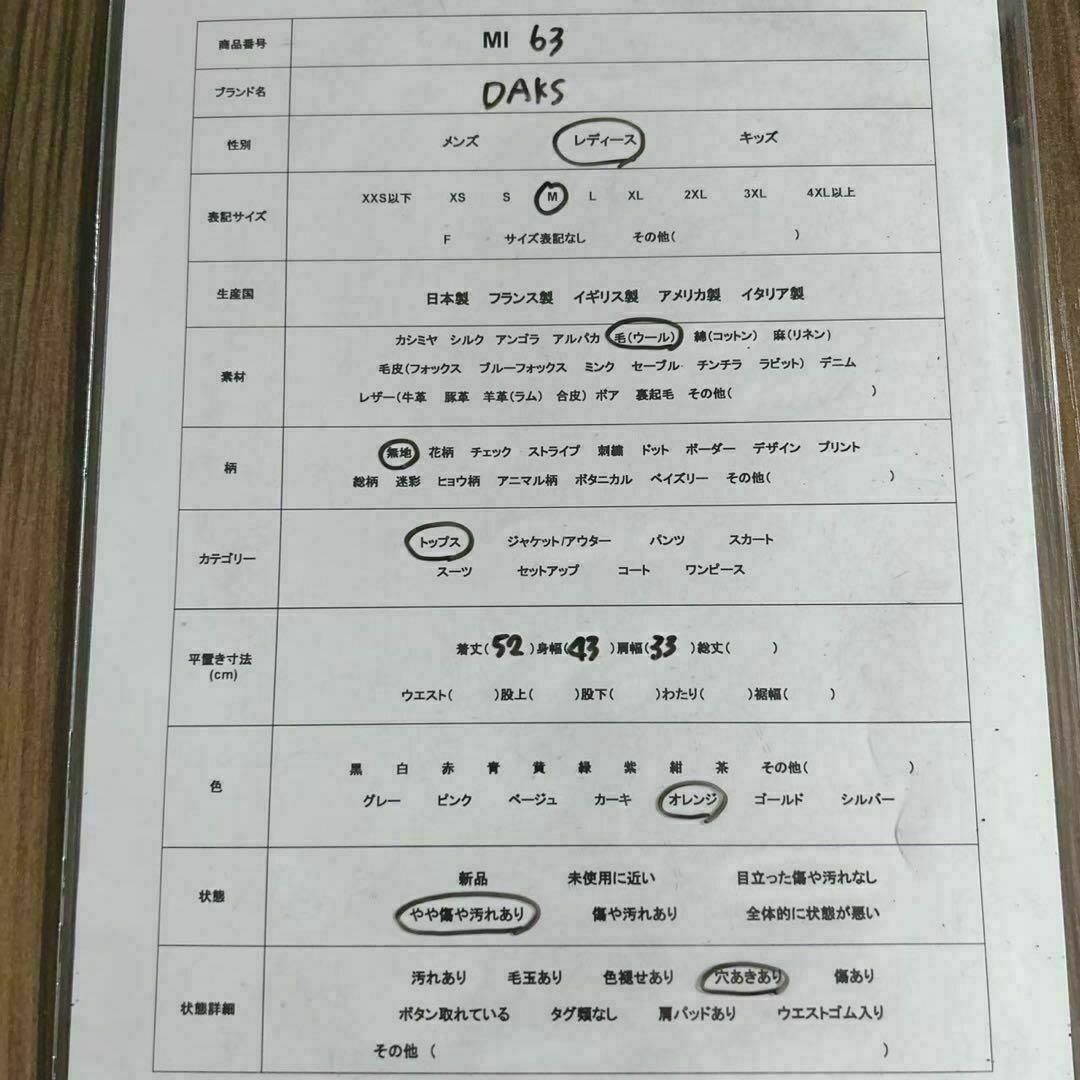 商品番号 MI 63
ブランド名 DAKS
性別 メンズ レディース キッズ
XXS以下 XS S M L XL 2XL 3XL 4XL以上
表記サイズ
F サイズ表記なし その他( )
生産国 日本製 フランス製 イギリス製 アメリカ製 イタリア製
カシミヤ シルク アンゴラ アルパカ 毛(ウール) 綿(コットン) 麻(リネン)
素材 毛皮(フォックス ブルーフォックス ミンク セーブル チンチラ ラビット) デニム
レザー(牛革 豚革 羊革(ラム) 合皮) ボア 裏起毛 その他( )
柄 無地 花柄 チェック ストライプ 刺繍 ドット ボーダー デザイン プリント
総柄 迷彩 ヒョウ柄 アニマル柄 ボタニカル ペイズリー その他( )
トップス ジャケット/アウター パンツ スカート
カテゴリー
スーツ セットアップ コート ワンピース
平置き寸法 着丈(52)身幅(43)肩幅(33)総丈( )
(cm)
ウエスト( )股上( )股下( )わたり( )裾幅( )
黒 白 赤 青 黄 緑 紫 紺 茶 その他( )
色
グレー ピンク ベージュ カーキ オレンジ ゴールド シルバー
新品 未使用に近い 目立った傷や汚れなし
状態
やや傷や汚れあり 傷や汚れあり 全体的に状態が悪い
汚れあり 毛玉あり 色褪せあり 穴あきあり 傷あり
状態詳細 ボタン取れている タグ類なし 肩パッドあり ウエストゴム入り
その他 ( )